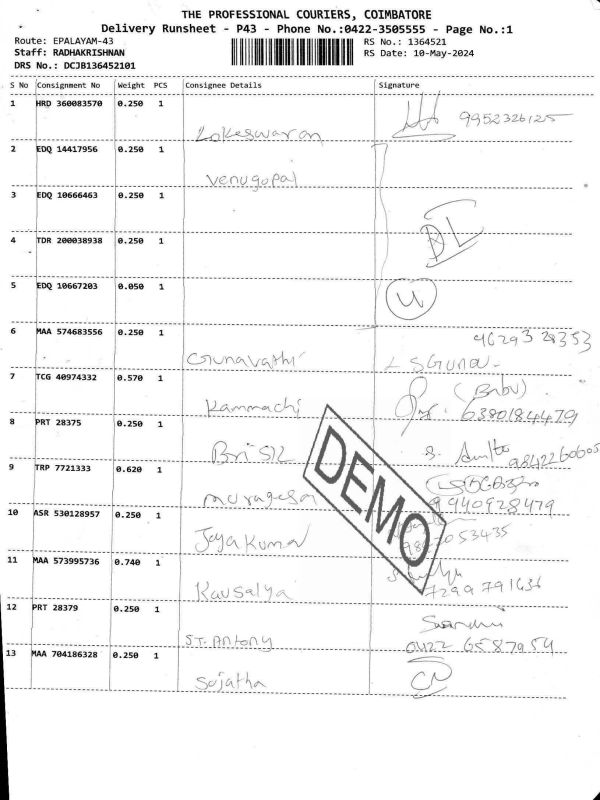 THE PROFESSIONAL COURIERS, COIMBATORE
Delivery Runsheet - P43 - Phone No.:0422-3505555 - Page No.:1
Route: EPALAYAM-43 RS No.: 1364521
Staff: RADHAKRISHNAN RS Date: 10-May-2024
DRS No.: DCJB136452101
S No Consignment No Weight PCS Consignee Details Signature
1 HRD 360083570 0.250 1 Lokeswaran 9952326125
2 EDQ 14417956 0.250 1 Venugopal
3 EDQ 10666463 0.250 1
4 TDR 200038938 0.250 1 DL
5 EDQ 10667203 0.050 1 U
6 MAA 574683556 0.250 1 Gunavathi
7 TCG 40974332 0.570 1 Kammachi (Babu) 6380184479
8 PRT 28375 0.250 1 Brisk
9 TRP 7721333 0.620 1 murugesan 9940928479
10 ASR 530128957 0.250 1 Jeyakumar
11 MAA 573995736 0.740 1 Kausalya 7299791636
12 PRT 28379 0.250 1 ST. Antony 0422 6587954
13 MAA 704186328 0.250 1 Sujatha
DEMO